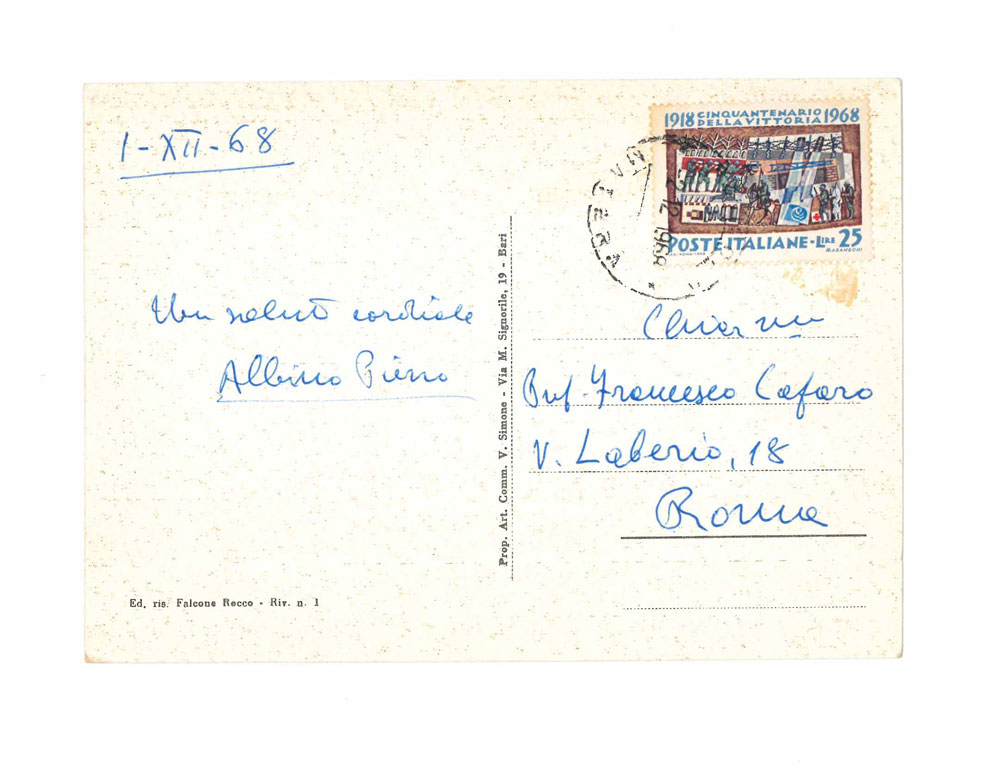 1-XII-68
Un saluto cordiale
Albino Pierro
Ed. ris. Falcone Recco - Riv. n. 1
Prop. Art. Comm. V. Simone - Via M. Signorile, 19 - Bari
1918 CINQUANTENARIO DELLA VITTORIA 1968
POSTE ITALIANE - LIRE 25
MARANGONI
12 1968
Chiar.mo
Prof. Francesco Cafaro
V. Laberio, 18
Roma